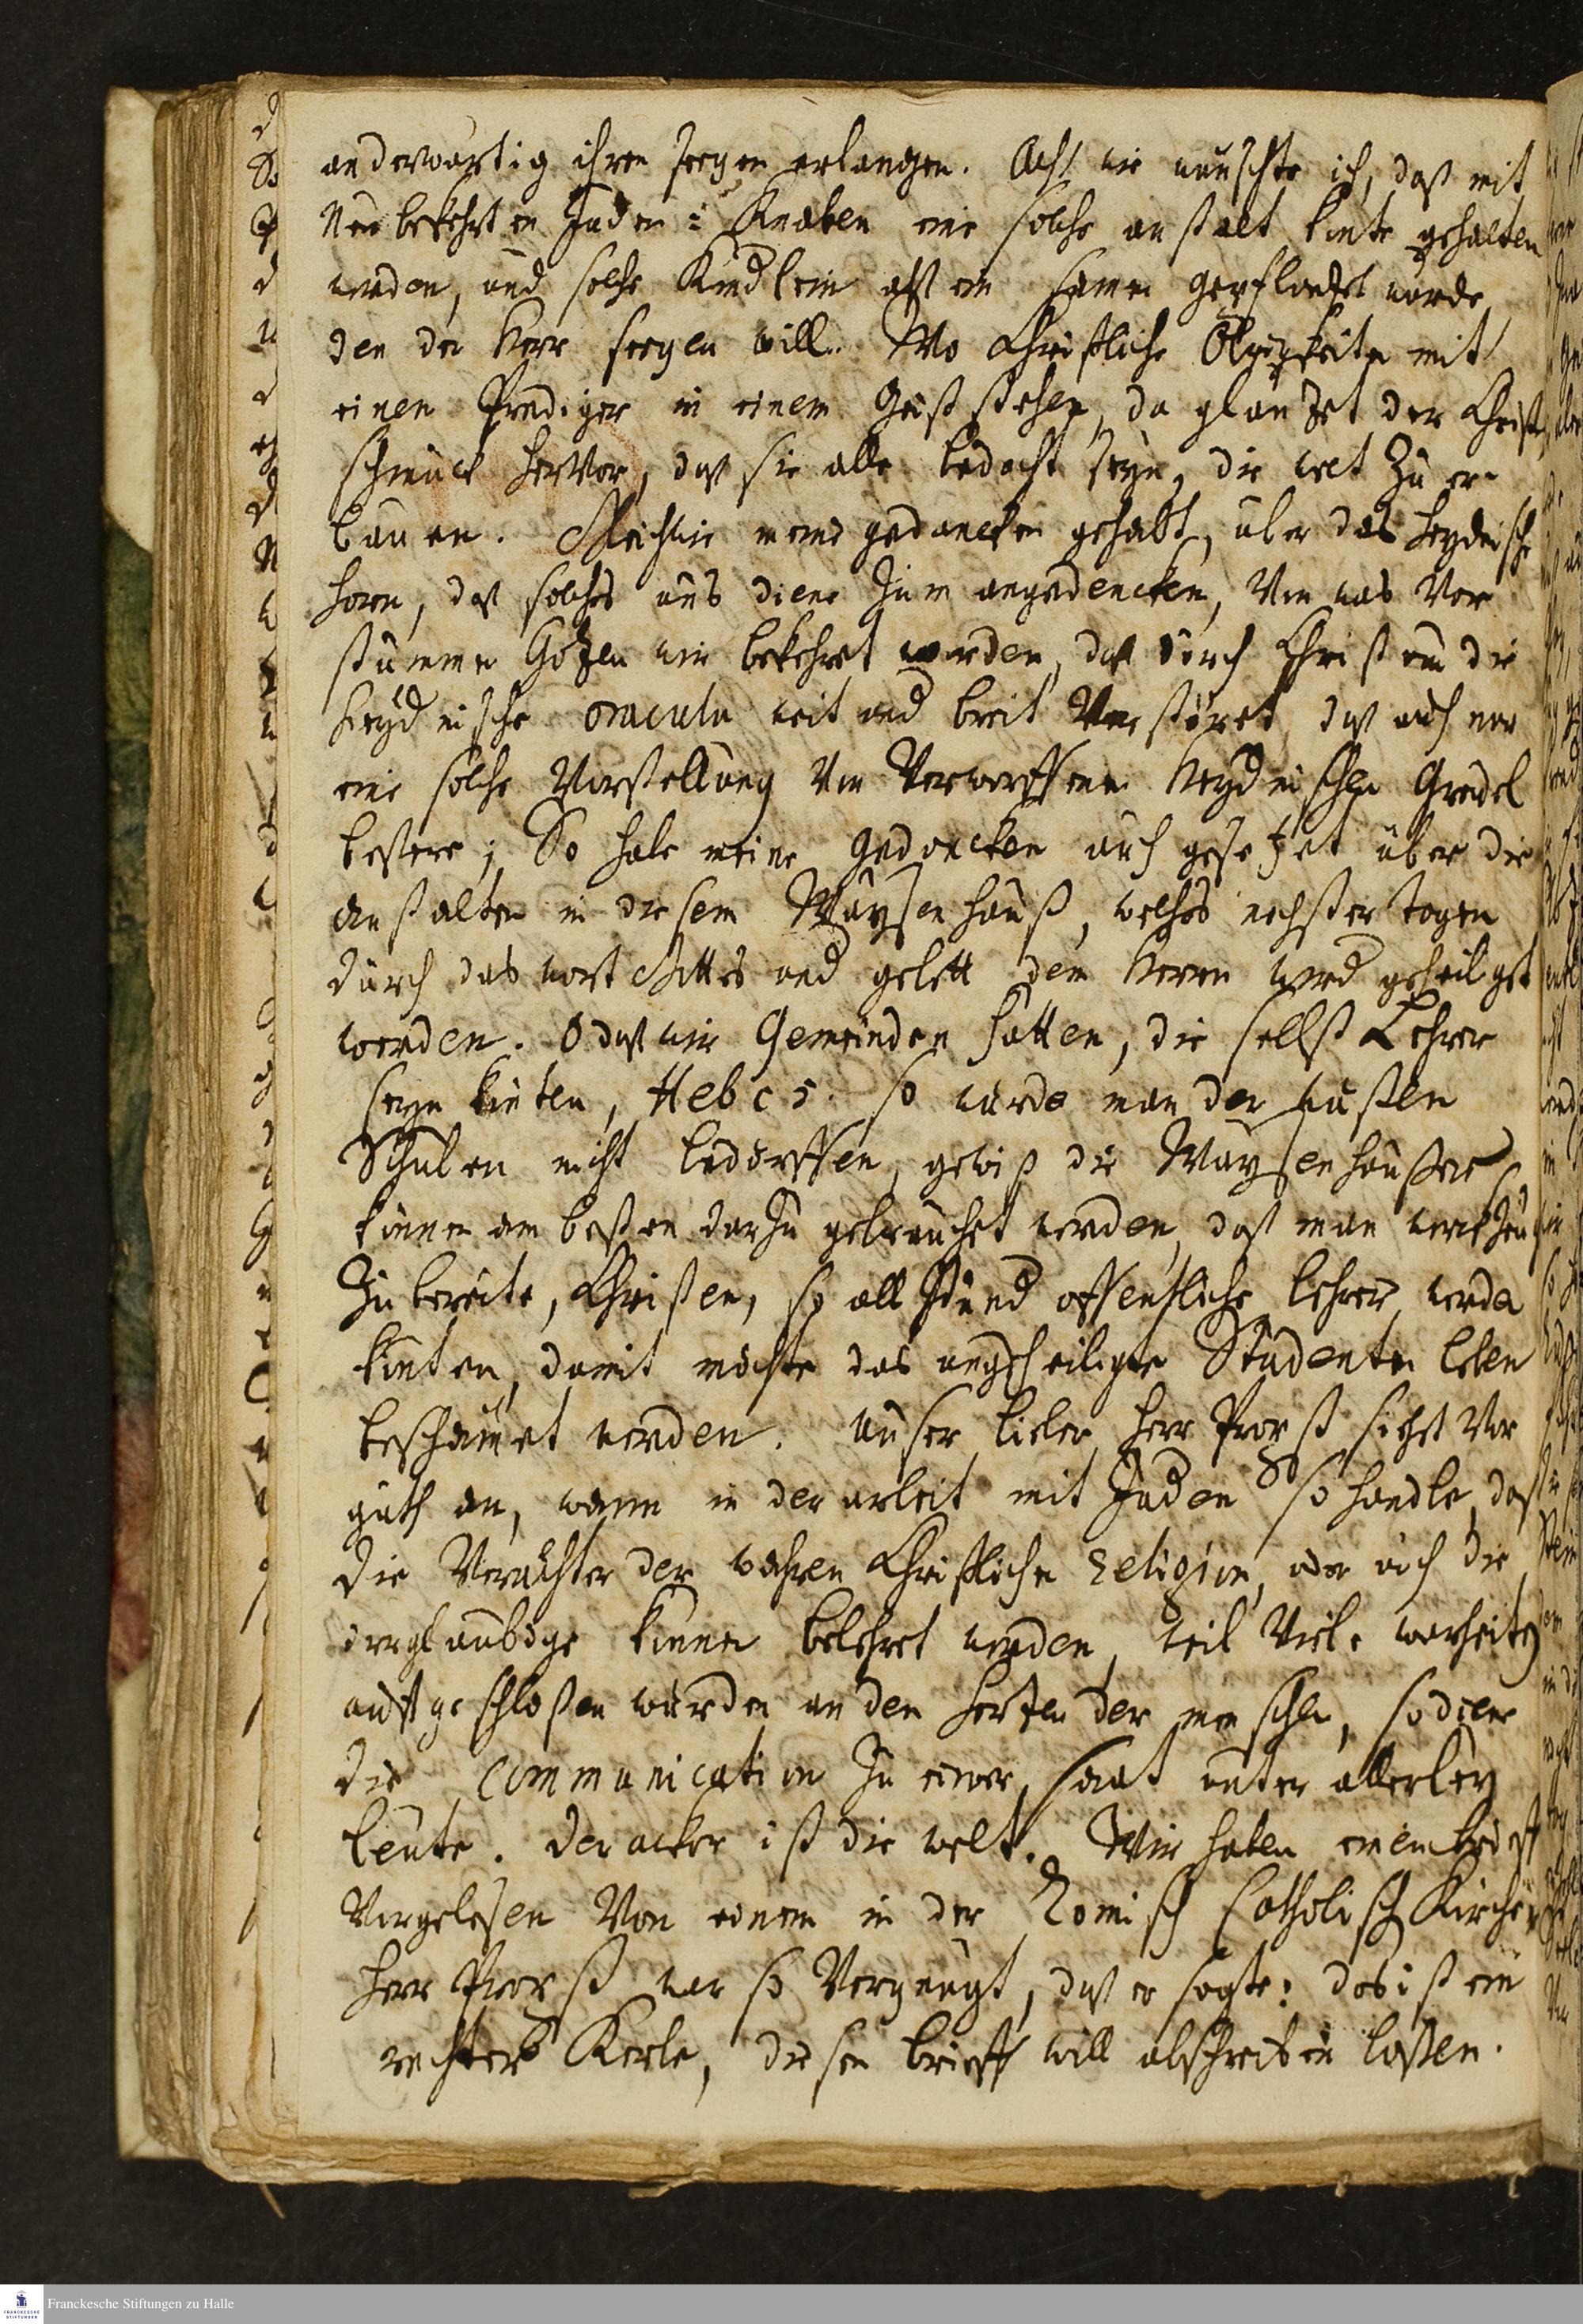 anderwärtig ihren seegen erlangen. Ach wie wünschte ich, daß mit
Neu bekehrten Juden : Knaben eine solche anstalt könte gehalten
werden, und solche Kindlein alß ein samen gepflantzet würde
den der Herr seegen will. Wo Christliche Obrigkeiten mit
einen Prediger in einem Geist stehen, da glantzet der Christ
schmuck hervor, daß sie alle bedacht seyn, die welt zu er-
bauen. Gleichwie meine gedancken gehabt, über das heydnische
horn, daß solches uns diene zum angedencken, Von was Vor
stummen Götzen wir bekehret worden, daß durch Christum die
heydnische oracula weit und breit Verstöret, daß auch nur
eine solche Vorstellung Von Verworffenen Heydnischen Greuel
bestehe; So habe meine gedancken auch gesetzet über die
anstalten in diesem Waysenhauß, welches nechster tagen
durch das wort Gottes und gebett dem Herrn wird geheiliget
werden. O daß wir Gemeinden hätten, die selbst Lehrer
seyn könten, Hebr 5. so würde man der
Schulen nicht bedörffen, gewiß die Waysenhäußer
können am besten darzu gebrauchet werden, daß man werckzeug
zubereite, Christen, so all stünd offentliche lehrer werden
könten, damit möchte das ungeheiligte Studenten leben
beschämet werden. Unser lieber Herr Probst siehet Vor
guth an, wann in der arbeit mit Juden So handle, daß
die Verächter der wahren Christlichen Religion, oder auch die
irrglaubige können belehret werden, weil Viele warheiten
aufgeschloßen würden an den hertzen der menschen, so diene
die Communication zu einer saat unter allerley
leute. der acker ist die welt. Wir haben einen brieff
Vorgelesen Von einem in der Römisch Catholisch Kirchen
Herr Probst war so Vergnügt, daß er sagte: das ist ein
rechter Kerle, diesen brieff will abschreiben laßen.
Franckesche Stiftungen zu Halle